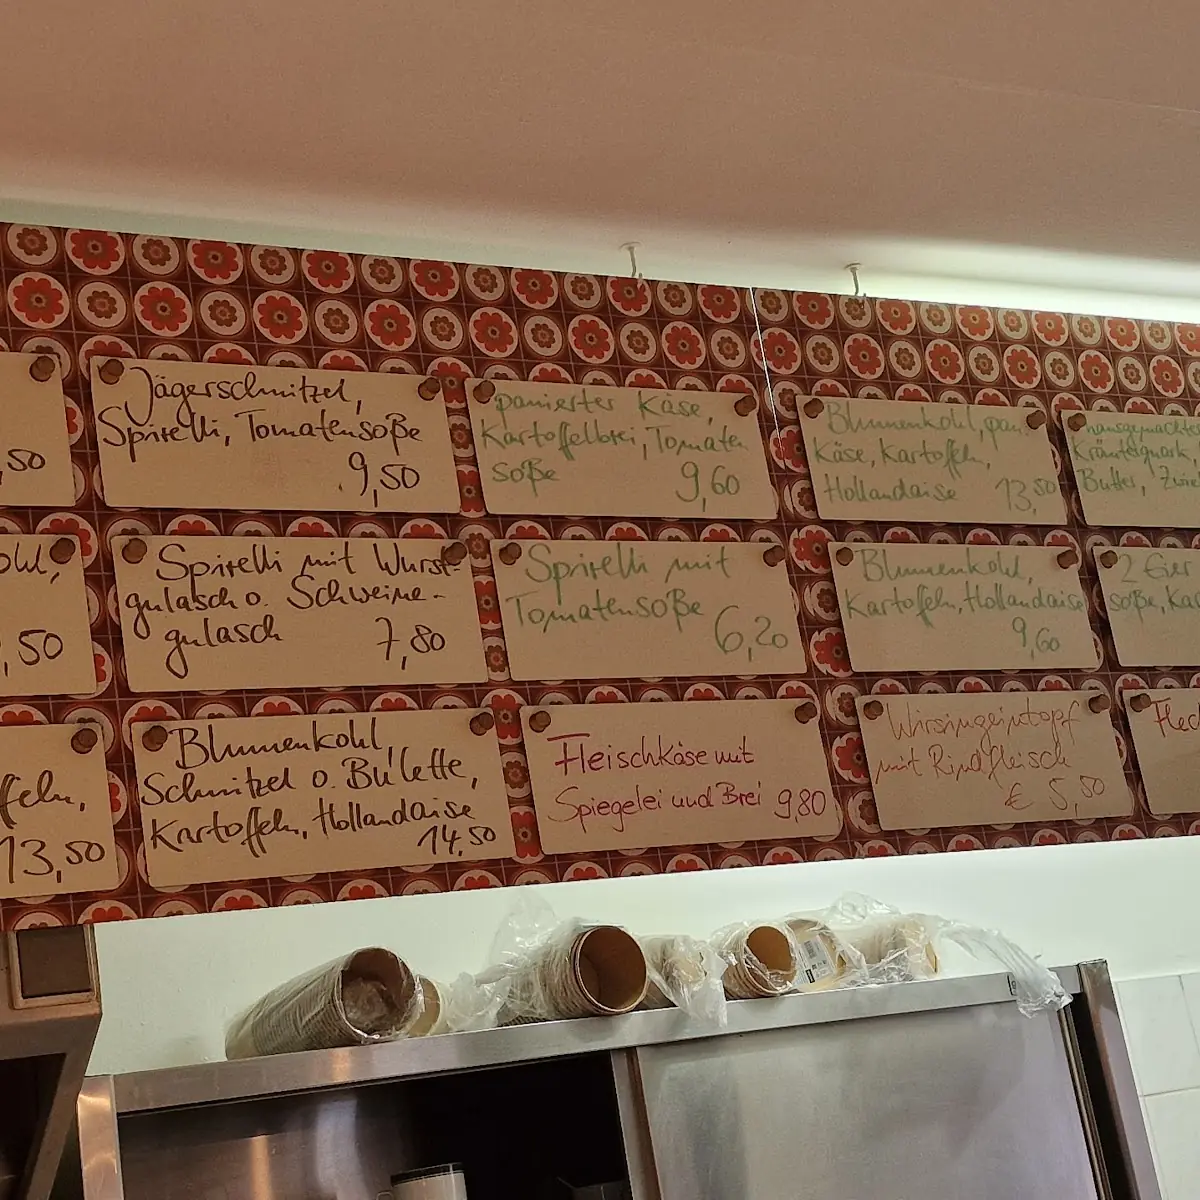 ,50
Jägerschnitzel,
Spirelli, Tomatensoße
9,50
panierter Käse,
Kartoffelbrei, Tomaten
soße 9,60
Blumenkohl, pan.
Käse, Kartoffeln,
Hollandaise 13,50
hausgemachter
Kräuterquark,
Butter, Zwie
ohl,
,50
Spirelli mit Wurst-
gulasch o. Schweine-
gulasch 7,80
Spirelli mit
Tomatensoße 6,20
Blumenkohl,
Kartoffeln, Hollandaise
9,60
2 Eier
soße, Kar
ffeln,
13,50
Blumenkohl,
Schnitzel o. Bulette,
Kartoffeln, Hollandaise
14,50
Fleischkäse mit
Spiegelei und Brei 9,80
Wirsingeintopf
mit Rindfleisch
€ 5,50